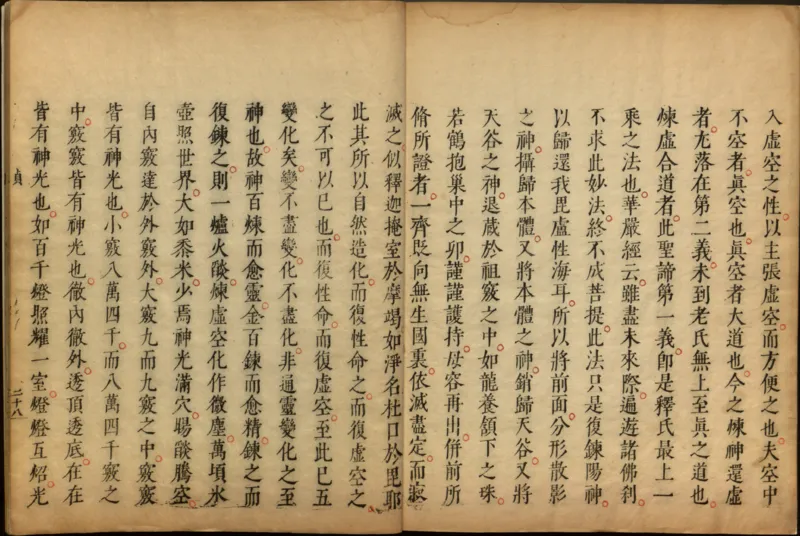 入虛空之性以主張虛空而方便之也夫空中
不空者眞空也眞空者大道也今之煉神還虛
者尤落在第二義未到老氏無上至眞之道也
煉虛合道者此聖諦第一義卽是釋氏最上一
乘之法也華嚴經云雖盡未來際遍遊諸佛刹
不求此妙法終不成菩提此法只是復鍊陽神
以歸還我毘盧性海耳所以將前面分形散影
之神攝歸本體又將本體之神銷歸天谷又將
天谷之神退藏於祖竅之中如龍養頷下之珠
若鶴抱巢中之卵謹謹護持毋容再出倂前所
脩所證者一齊旣向無生國裏依滅盡定而寂
滅之似釋迦掩室於摩竭如淨名杜口於毘耶
此其所以自然造化而復性命之而復虛空之
之不可以已也而復性命而復虛空至此已五
變化矣變不盡變化不盡化非通靈變化之至
神也故神百煉而愈靈金百鍊而愈精鍊之而
復鍊之則一爐火燄煉虛空化作微塵萬頃氷
壺照世界大如黍米少焉神光滿穴陽燄騰空
自內竅達於外竅外大竅九而九竅之中竅竅
皆有神光也小竅八萬四千而八萬四千竅之
中竅竅皆有神光也徹內徹外透頂透底在在
皆有神光也如百千燈照耀一室燈燈互紹光
貞
二十八